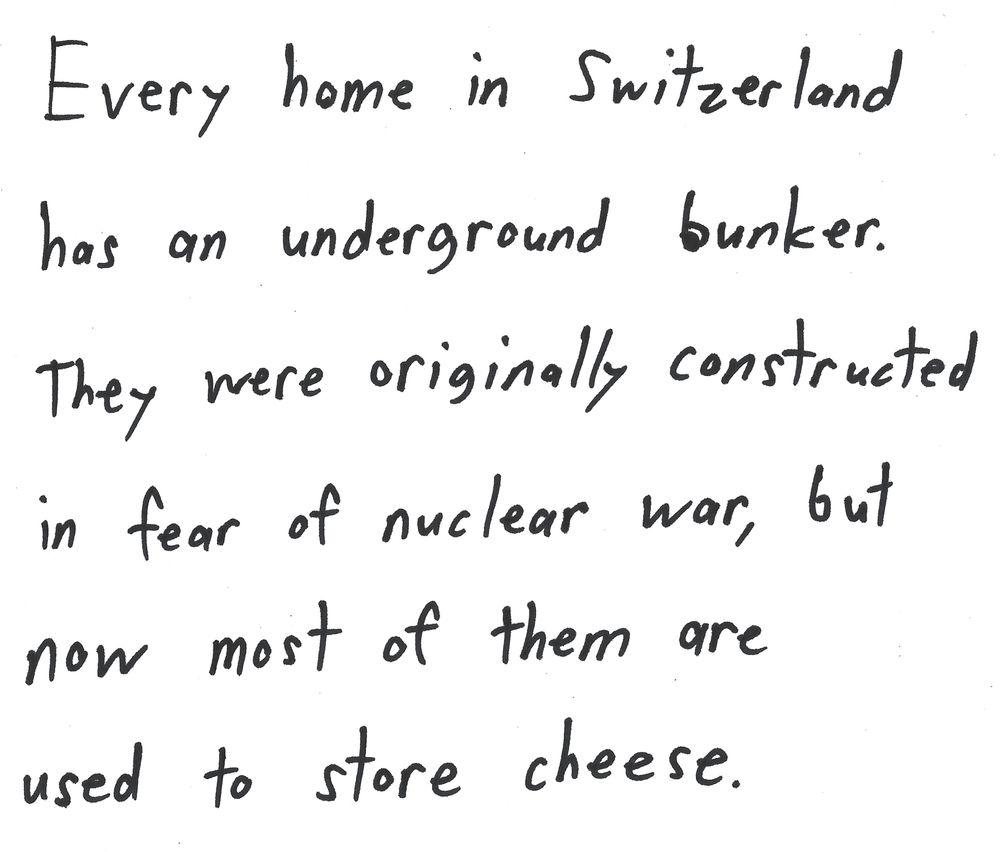 Every home in Switzerland
has an underground bunker.
They were originally constructed
in fear of nuclear war, but
now most of them are
used to store cheese.